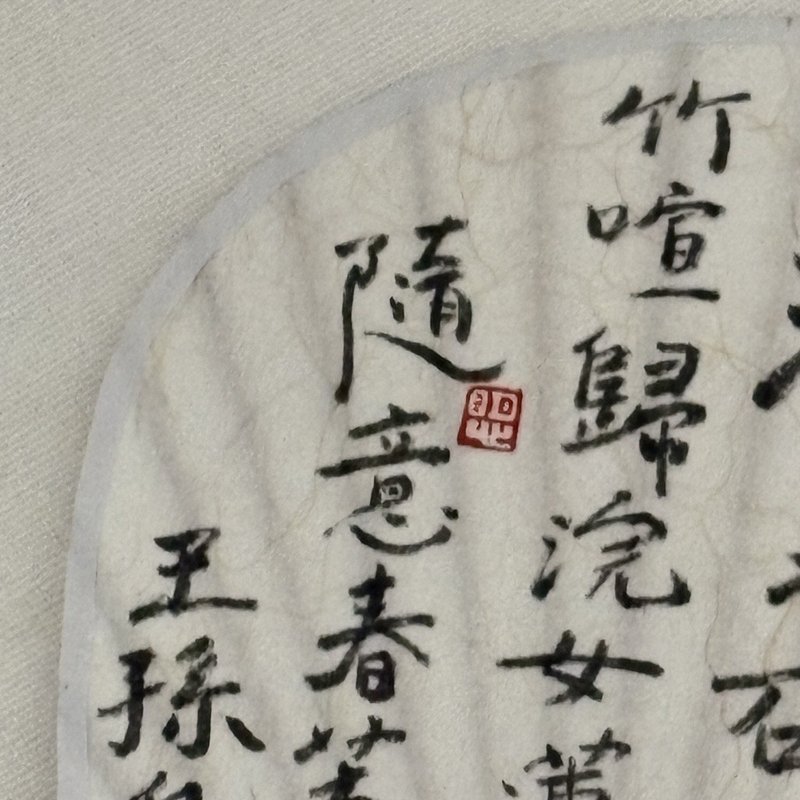 竹喧歸浣女
隨意春
王孫